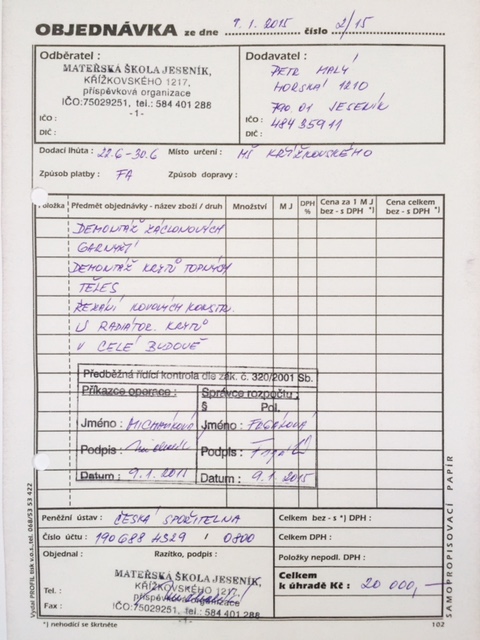 OBJEDNÁVKA ze dne 9.1.2015 číslo 2/15
Odběratel :
MATEŘSKÁ ŠKOLA JESENÍK,
KŘÍŽKOVSKÉHO 1217,
příspěvková organizace
IČO:75029251, tel.: 584 401 288
-1-
IČO :
DIČ :
Dodavatel :
PETR MALÝ
HORSKÁ 1210
790 01 JESENÍK
IČO : 48435911
DIČ :
Dodací lhůta : 22.6-30.6 Místo určení : MŠ KŘÍŽKOVSKÉHO
Způsob platby : FA Způsob dopravy :
Položka Předmět objednávky - název zboží / druh Množství M J DPH % Cena za 1 M J bez - s DPH *) Cena celkem bez - s DPH *)
DEMONTÁŽ ZÁCLONOVÝCH
GARNÝŽÍ
DEMONTÁŽ KRYTŮ TOPNÝCH
TĚLES
ŘEZÁNÍ KOVOVÝCH KONSTR.
U RADIÁTOR. KRYTŮ
V CELÉ BUDOVĚ
Předběžná řídící kontrola dle zák. č. 320/2001 Sb.
Příkazce operace : Správce rozpočtu :
§ Pol.
Jméno : Jméno :
Podpis : Podpis :
Datum : 9.1.2015 Datum : 9.1.2015
Peněžní ústav : ČESKÁ SPOŘITELNA
Číslo účtu : 190688 4329 / 0800
Objednal : Razítko, podpis :
MATEŘSKÁ ŠKOLA JESENÍK,
KŘÍŽKOVSKÉHO 1217,
příspěvková organizace
IČO:75029251, tel.: 584 401 288
-1-
Tel. :
Fax :
Celkem bez - s *) DPH :
Celkem DPH :
Položky nepodl. DPH :
Celkem
k úhradě Kč : 20 000,—
*) nehodící se škrtněte 102
Vydal PROFIL tisk v.o.s. tel. 068/53 53 422
SAMOPROPISOVACÍ PAPÍR